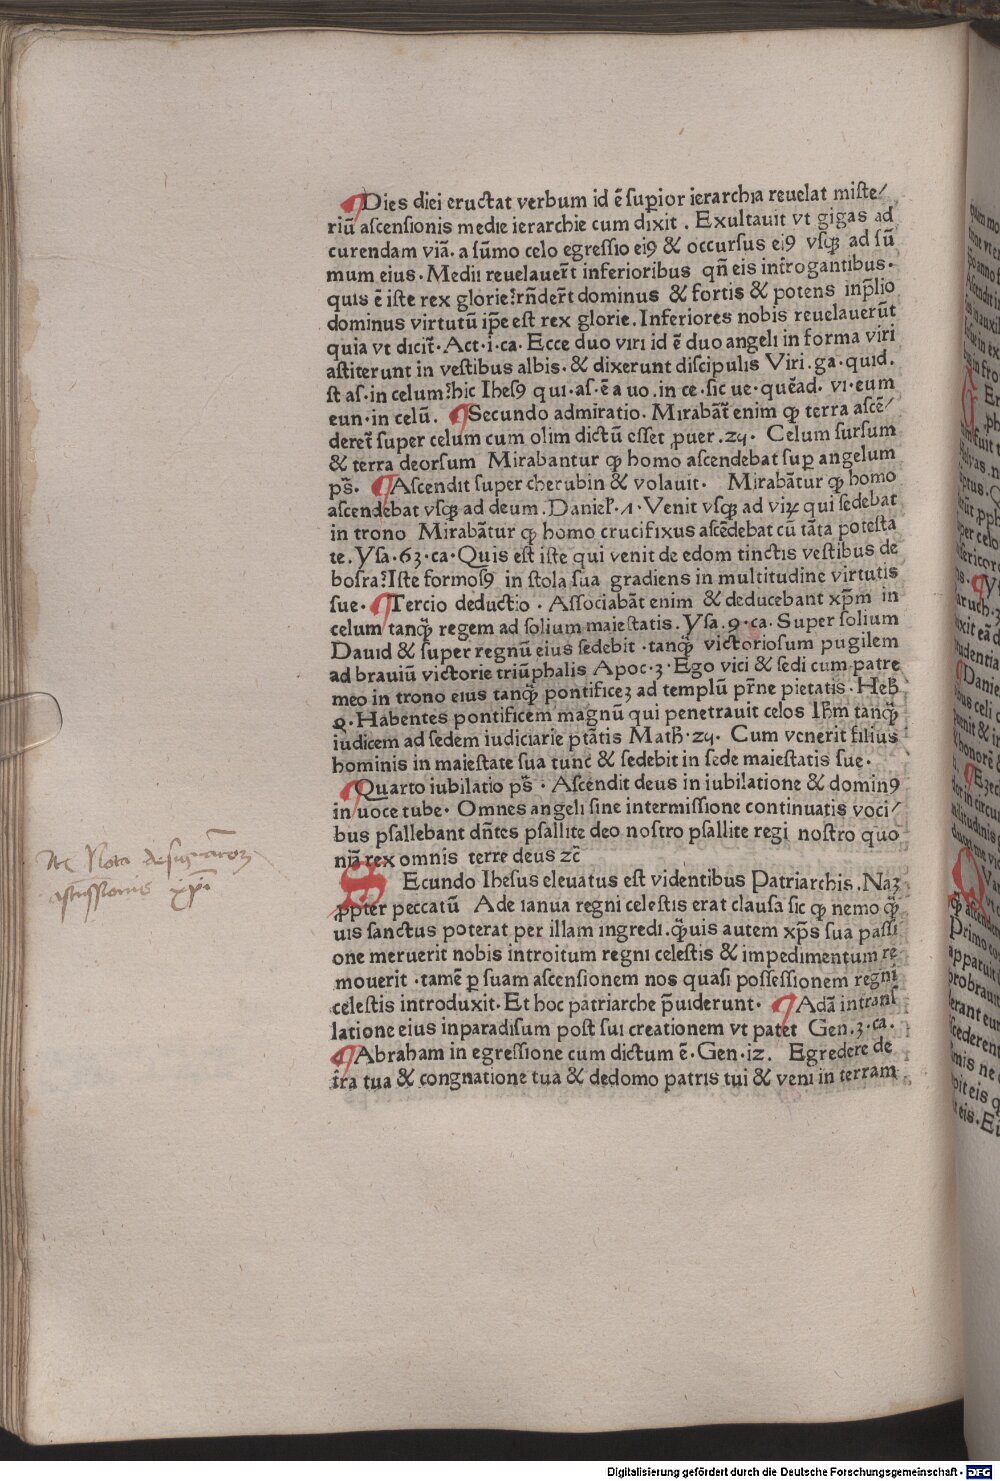 ¶Dies diei eructat verbum id ē sup̲ior ierarchia reuelat miste⸗
riū ascensionis medie ierarchie cum dixit . Exultauit vt gigas ad
curendam viā. a sūmo celo egressio ei9 & occursus ei9 vsq̨ ad sū
mum eius · Medii reuelauer̄t inferioribus qn̄ eis int̄rogantibus·
quis ē iste rex glorie? rn̄der̄t dominus & fortis & potens inp̄lio
dominus virtutū ip̄e est rex glorie . Inferiores nobis reuelauerūt
quia vt dicit̄· Act·i·ca· Ecce duo viri id ē duo angeli in forma viri
astiterunt in vestibus albis· & dixerunt discipulis Viri . ga · quid.
st as·in celum? hic Ihes9 qui·as·ē a uo .in ce·sic ue·quēad· vi·eum
eun·in celū . ¶Secundo admiratio· Mirabāt̄ enim ꝙ terra ascē⸗
deret̄ super celum cum olim dictū esset ꝓuer .24· Celum sursum
& terra deorsum Mirabantur ꝙ homo ascendebat sup̲ angelum
ps̄· ¶Ascendit super cherubin & volauit· Mirabātur ꝙ homo
ascendebat vsq̨ ad deum . Danieł·⁊· Venit vsq̨ ad viꝝ qui sedebat
in trono Mirabātur ꝙ homo crucifixus ascēdebat cū tāta potesta
te . Ysa·63·ca·Quis est iste qui venit de edom tinctis vestibus de
bosra? Iste formos9 in stola sua gradiens in multitudine virtutis
sue· ¶Tercio deductio · Associabāt enim & deducebant xp̄m in
celum tanq̄ regem ad solium maiestatis . Ysa . 9·ca . Super solium
Dauid & super regnū eius sedebit ·tanq̄ victoriosum pugilem
ad brauiū victorie triūphalis Apoc·3·Ego vici & sedi cum patre
meo in trono eius tanq̄ pontificeꝫ ad templū pr̄ne pietatis·Heb̄
9·Habentes pontificem magnū qui penetrauit celos Ih̄m tanq̄
iudicem ad sedem iudiciarie ptātis Math̄·24· Cum venerit filius
hominis in maiestate sua tunc & sedebit in sede maiestatis sue·
¶Quarto iubilatio ps̄ · Ascendit deus in iubilatione & domin9
in uoce tube· Omnes angeli sine intermissione continuatis voci⸗
bus psallebant dn̄tes psallite deo nostro psallite regi nostro quo
niā rex omnis terre deus zc̄
SEcundo Ihesus eleuatus est videntibus Patriarchis . Naꝫ
ꝓpter peccatū Ade ianua regni celestis erat clausa sic ꝙ nemo q̄
uis sanctus poterat per illam ingredi .q̄uis autem xp̄s sua passi
one meruerit nobis introitum regni celestis & impedimentum re
mouerit ·tamē ꝑ suam ascensionem nos quasi possessionem regni
celestis introduxit·Et hoc patriarche p̄uiderunt· ¶Adā intransl
latione eius inparadisum post sui creationem vt patet Gen . 3·ca·
¶Abraham in egressione cum dictum ē·Gen·iz . Egredere de
t̄ra tua & congnatione tua & dedomo patris tui & veni in terram
Nota
xp̄i
Digitalisierung gefördert durch die Deutsche Forschungsgemeinschaft - DFG